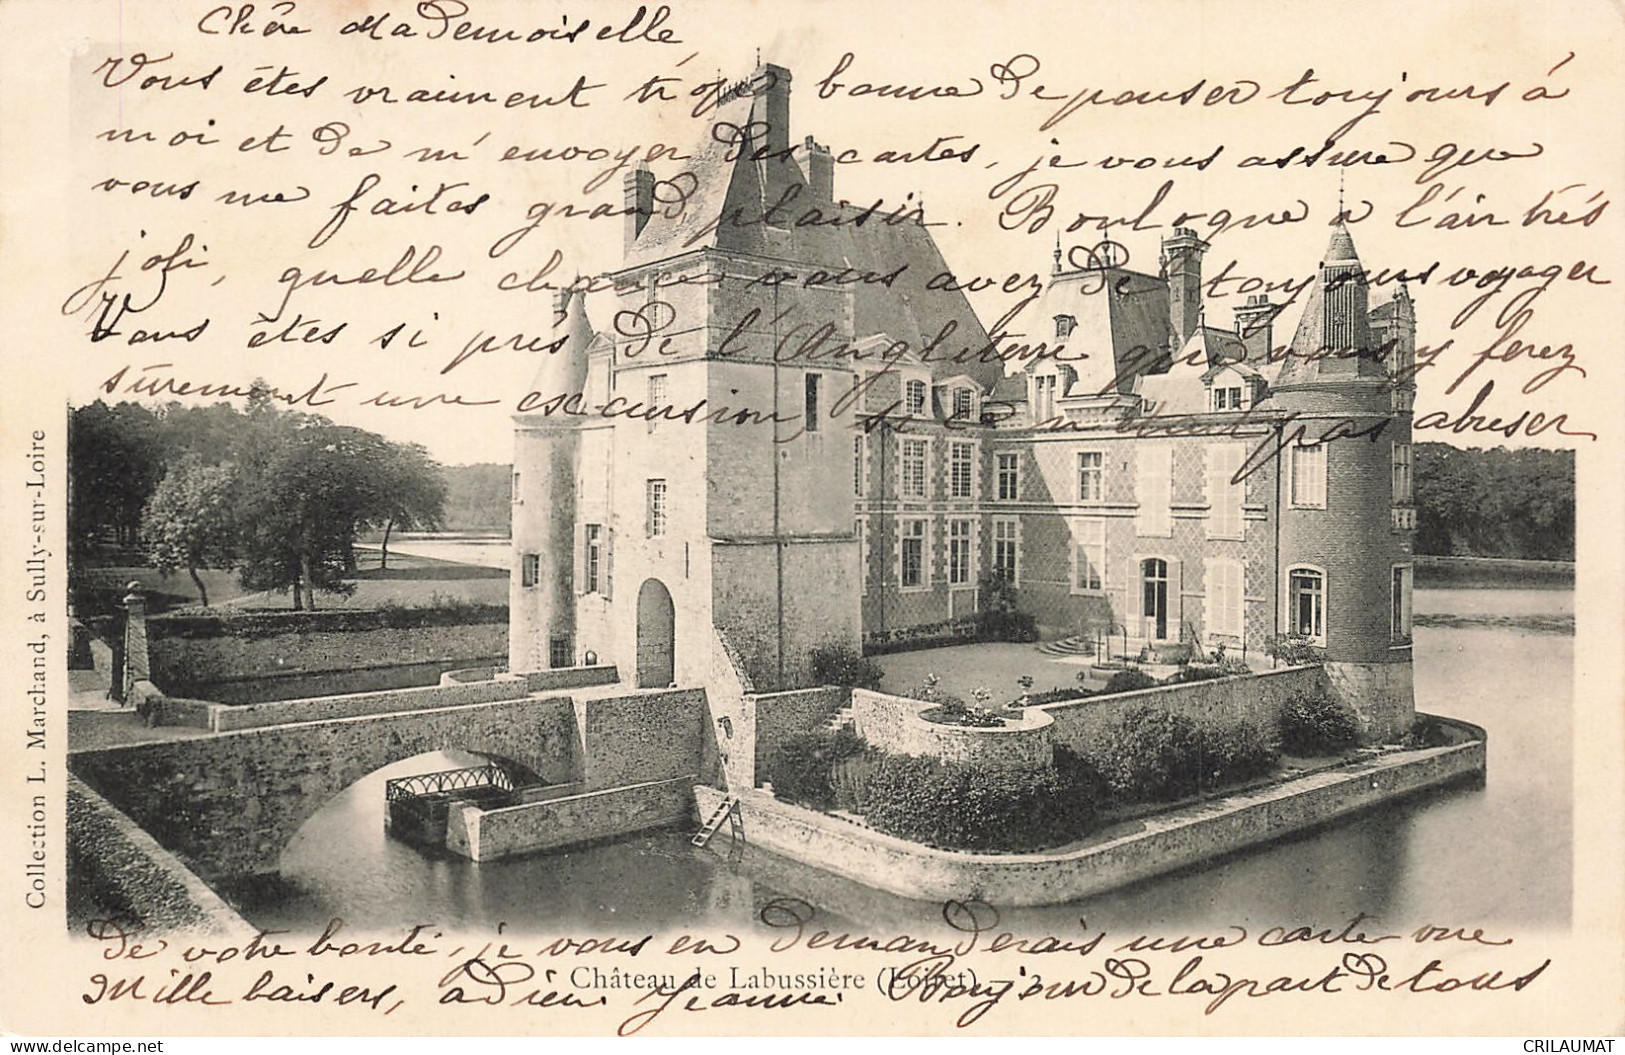 Chère Mademoiselle,
Vous êtes vraiment trop bonne de penser toujours à
moi et de m'envoyer des cartes, je vous assure que
vous me faites grand plaisir. Boulogne a l'air très
joli, quelle chance vous avez de toujours voyager
Vous êtes si près de l'Angleterre que vous y ferez
sûrement une excursion, si ce n'était pas abuser
De votre bonté, je vous en demanderais une carte vue
Mille baisers, adieu Jeanne. Bonjour de la part de tous
Château de Labussière (Loiret)
Collection L. Marchand, à Sully-sur-Loire
www.delcampe.net
CRILAUMAT